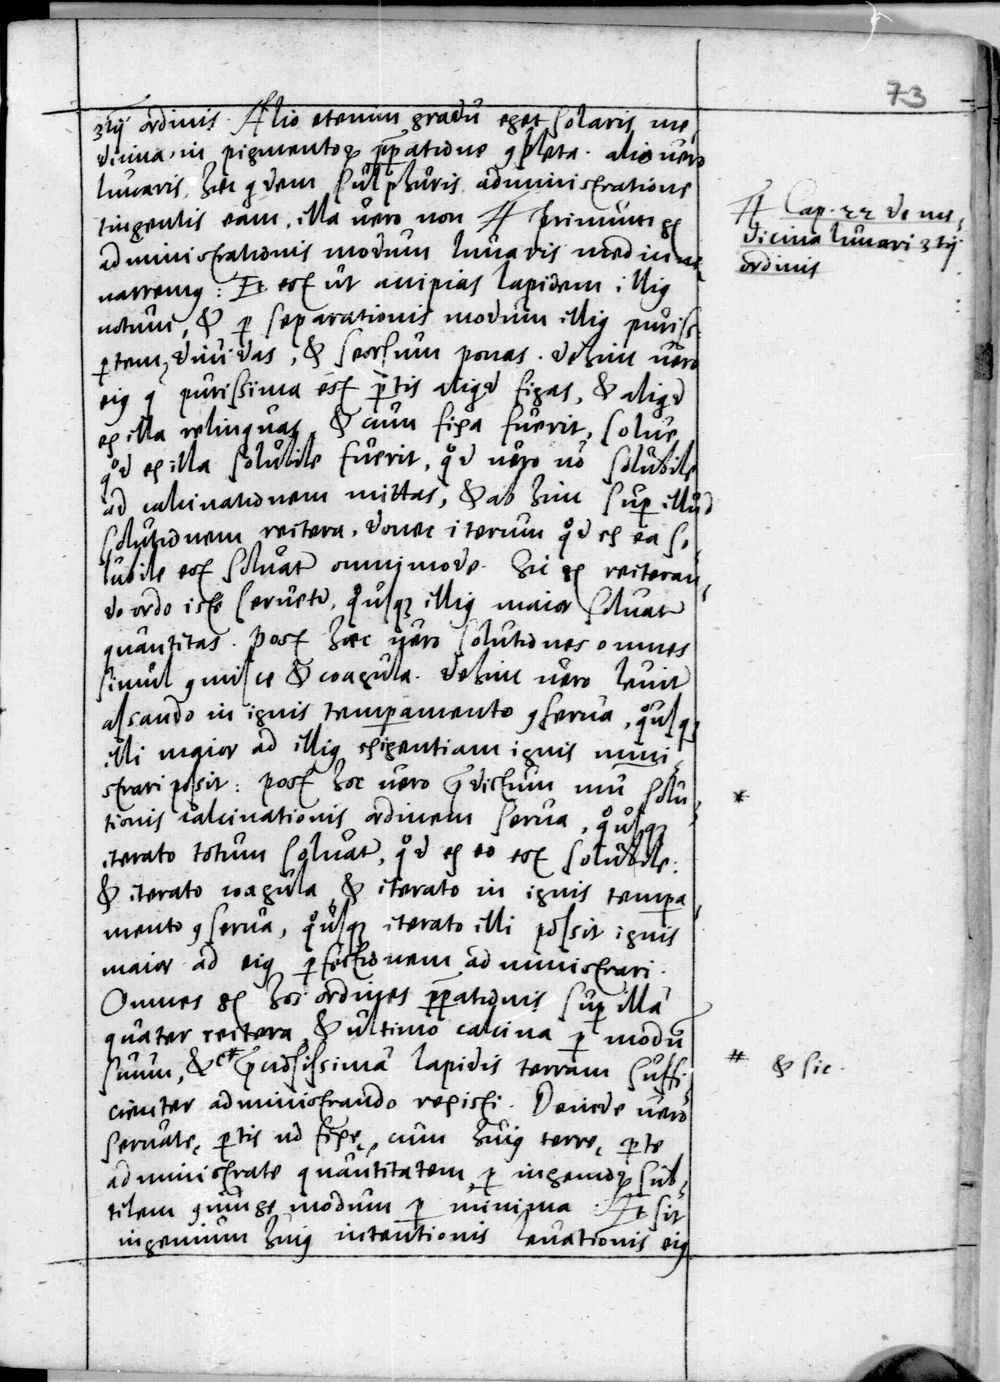 73
3tij ordinis. Alio etenim gradu eget solaris me,
dicina, in pigmentoꝝ ꝑꝑatione ꝯpleta. alio uero
lunaris, hec qͥdem sulphuris administratione
tingentis eam, illa uero non # Primum gͦ
administrationis modum lunaris medicine
narremꝰ: Et est ut accipias lapidem illiꝰ
notum, & ꝑ separationis modum illiꝰ puriss.
ꝑtem diuidas, & seorsum ponas. dehinc uero
eiꝰ q purissima est ꝑtis aliqd figas, & aliqd
ex illa relinquas & cum fixa fuerit, solue
qͦd ex illa solubile fuerit, qͦd uero nō solubile
ad calcinationem mittas, & ab hinc suꝑ illud
solutionem reitera, donec iterum qͦd ex ea so,
lubile est soluat omnimode. hic gͦ reiteran,
do ordo iste seruetr, qͦusqꝫ illiꝰ maior soluat
quantitas. Post hæc uero solutiones omnes
simul ꝯmisce & coagula. dehinc uero leuit
assando in ignis temperamento ꝯserua, qͦusqꝫ
illi maior ad illiꝰ exigentiam ignis mini,
strari possit: post hoc uero p̄dictum mū solu,
tionis calcinationis ordinem serua, qͦusqꝫ
iterato totum soluat, qͦd ex eo est solubile:
& iterato coagula & iterato in ignis tempa,
mento ꝯserua, qͦusqꝫ iterato illi possit ignis
maior ad eiꝰ ꝑfectionem administrari.
Omnes gͦ hos ordines ꝑꝑationis suꝑ illā
quater reitera & ultimo calcina ꝑ modū
suum, & # p̄ciosissimā lapidis terram suffi,
cienter administrando rexisti. Deinde uero
seruate, ꝑtis nō fixę, cum huiꝰ terrę, ꝑte
administrate quantitatem, ꝑ ingenioꝝ sub,
tilem ꝯiunge modum ꝑ minima. Et sit
ingenium huiꝰ intentionis leuationis eiꝰ
# Cap. 22 de me,
dicina lunari 3tij
ordinis
*
# & sic.